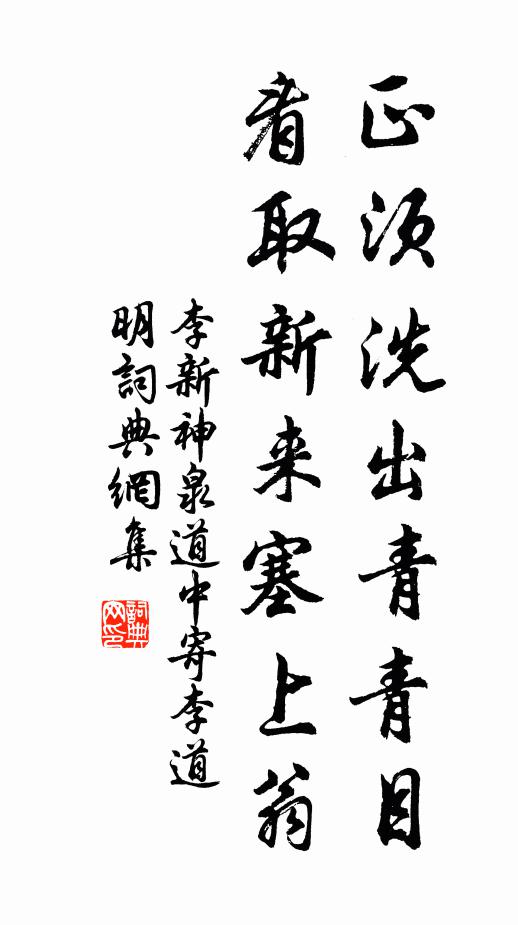 正须洗出青青目
看取新来塞上翁
李新神泉道中寄李道
明詞典網集
詞典网印